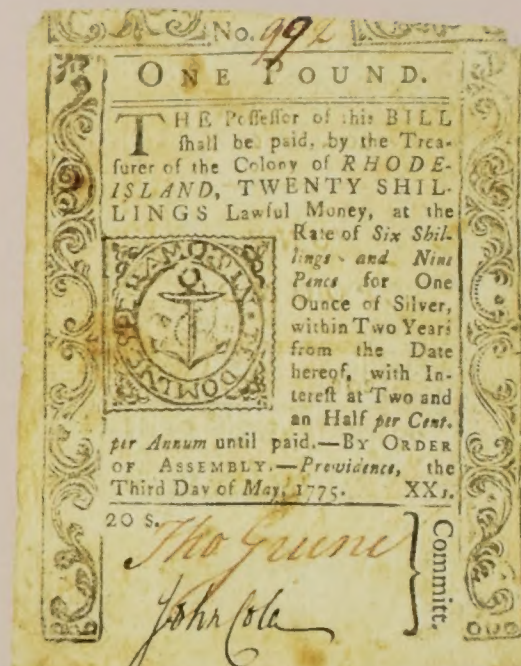 No. 992
ONE POUND.
THE Poſſeſſor of this BILL
ſhall be paid, by the Trea-
ſurer of the Colony of RHODE-
ISLAND, TWENTY SHIL-
LINGS Lawful Money, at the
Rate of Six Shil-
lings and Nine
Pence for One
Ounce of Silver,
within Two Years
from the Date
hereof, with In-
tereſt at Two and
an Half per Cent.
per Annum until paid.—BY ORDER
OF ASSEMBLY.—Providence, the
Third Day of May, 1775. XXs.
IN TE DOMINE SPERAMUS
20 S.
Tho Greene
John Cole
Committ.